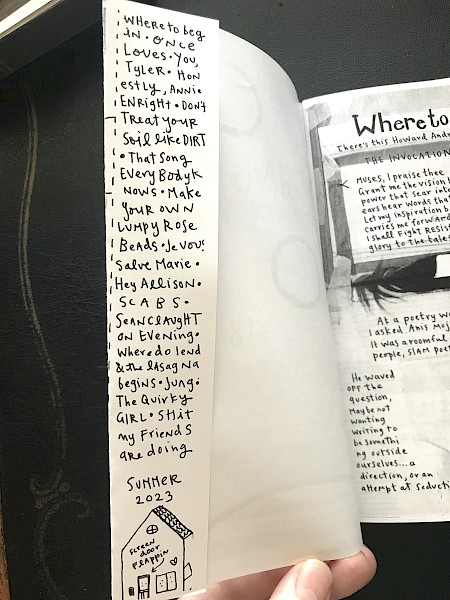 WHERE to beg
IN • ONCE
LOVES • YOU,
TYLER • HON
estly, ANNIE
ENRIGHT • DON'T
TREAT YOUR
SOIL like DIRT
• That SONG
EVERY BODYK
NOWS • MAKE
YOUR OWN
LUMPY ROSE
BeAds • Je vous
Salve Marie •
Hey ALLISON •
SCABS •
SEAN CLAUGHT
ON EVENING •
Where do I end
& the lasagna
begins • Jung •
The QUIRKY
GIRL • SHIT
my FRIENDS
are doing
SUMMER
2023
SCREEN
DOOR
FLAPPIN
Where to
There's this Howard And
THE INVOCATION
MUSES, I praise thee
Grant me the vision
power that sear into
ears hear words tha
Let my inspiration b
carries me forward
I shall FIGHT RESIS
glory to the tale
At a poetry wo
I asked Anis Moj
It was a roomful
people, SLAM poet
He waved
OFF the
question,
Maybe not
wanting
writing to
be somethi
ng outside
ourselves... a
direction, or an
attempt at seducti